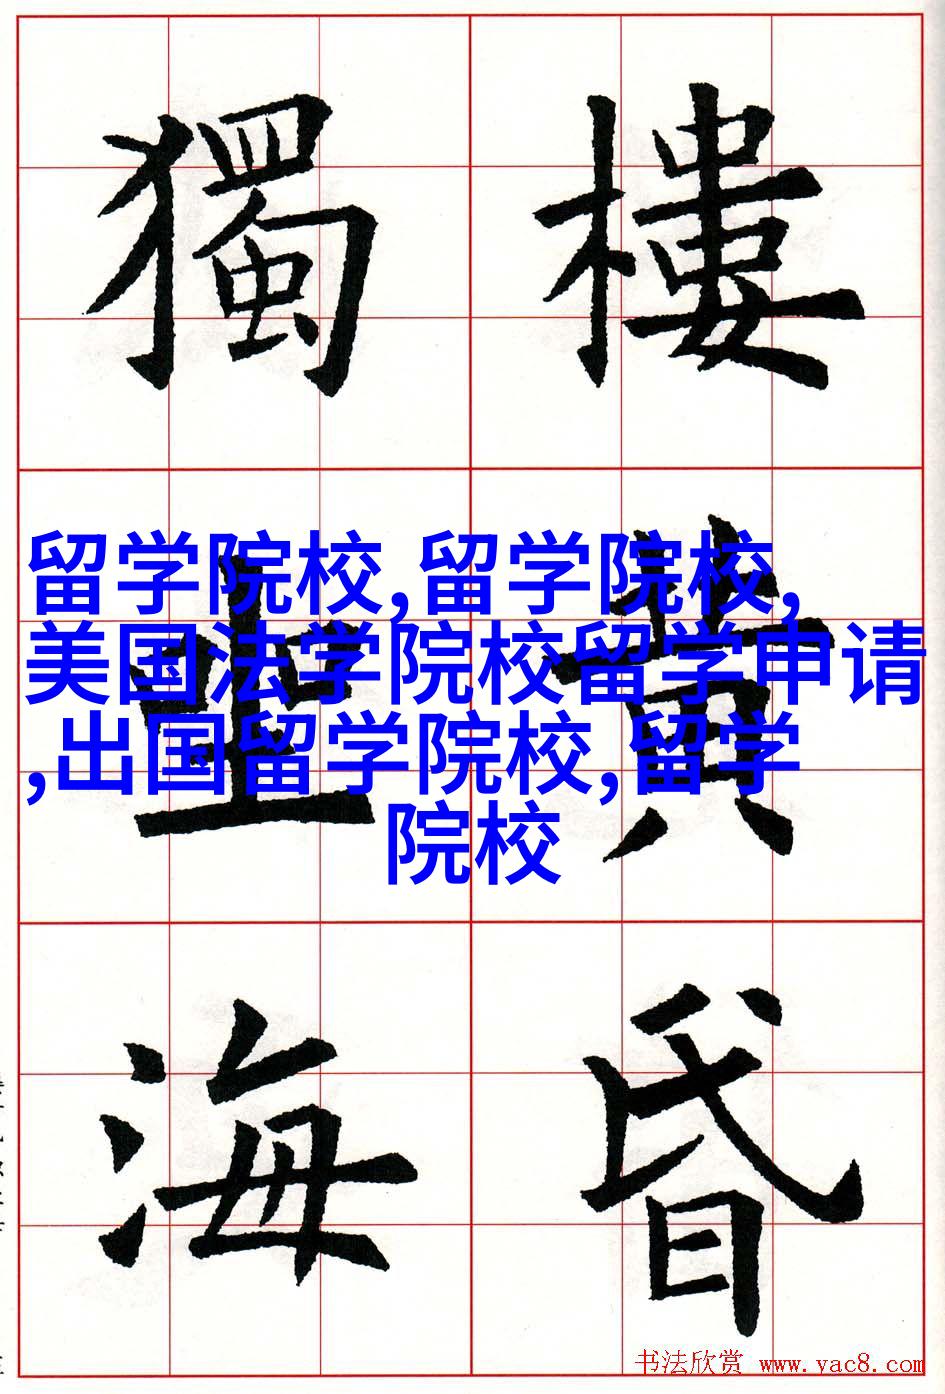 樓黄昏
獨坐海
留学院校,留学院校,
美国法学院校留学申请
,出国留学院校,留学
院校
书法欣赏 www.yac8.com